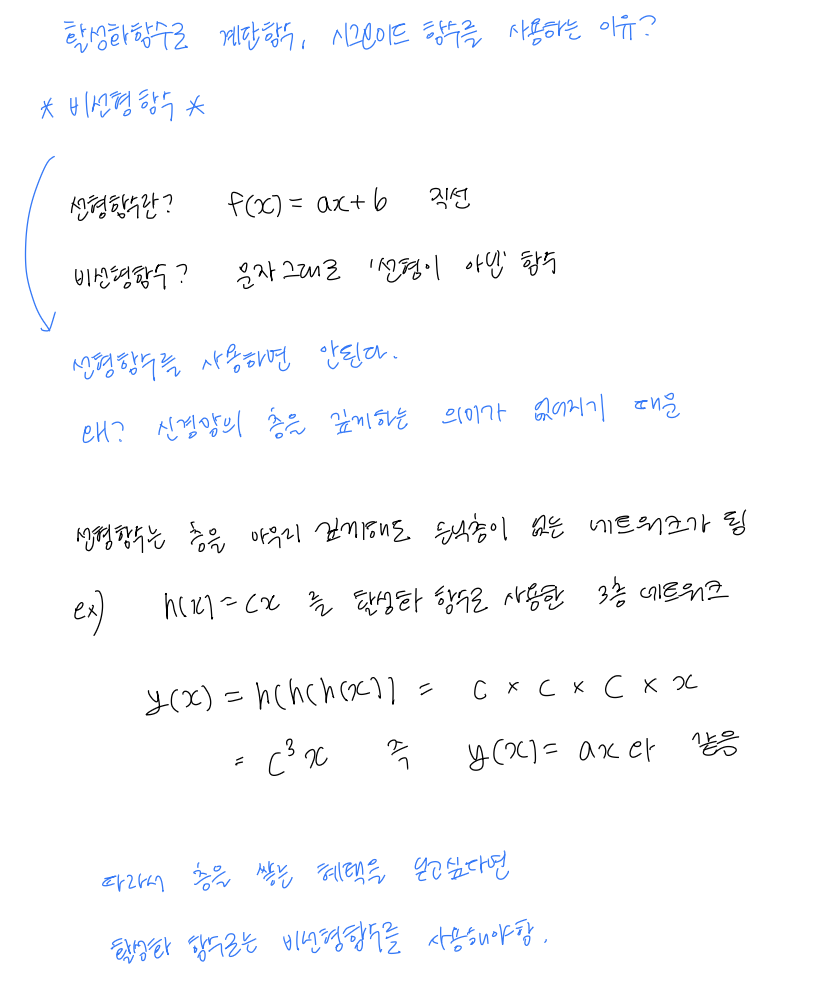 활성화함수로 계단함수, 시그모이드 함수를 사용하는 이유?
* 비선형함수 *
선형함수란? f(x) = ax+b 직선
비선형함수? 문자그대로 '선형이 아닌' 함수
선형함수를 사용하면 안된다.
왜? 신경망의 층을 깊게하는 의미가 없어지기 때문
선형함수는 층을 아무리 깊게해도 은닉층이 없는 네트워크가 됨
ex) h(x) = cx 를 활성화 함수로 사용한 3층 네트워크
y(x) = h(h(h(x)) = c × c × c × x
= c³x 즉 y(x) = ax 와 같음
따라서 층을 쌓는 혜택을 얻고싶다면
활성화 함수로는 비선형함수를 사용해야함.